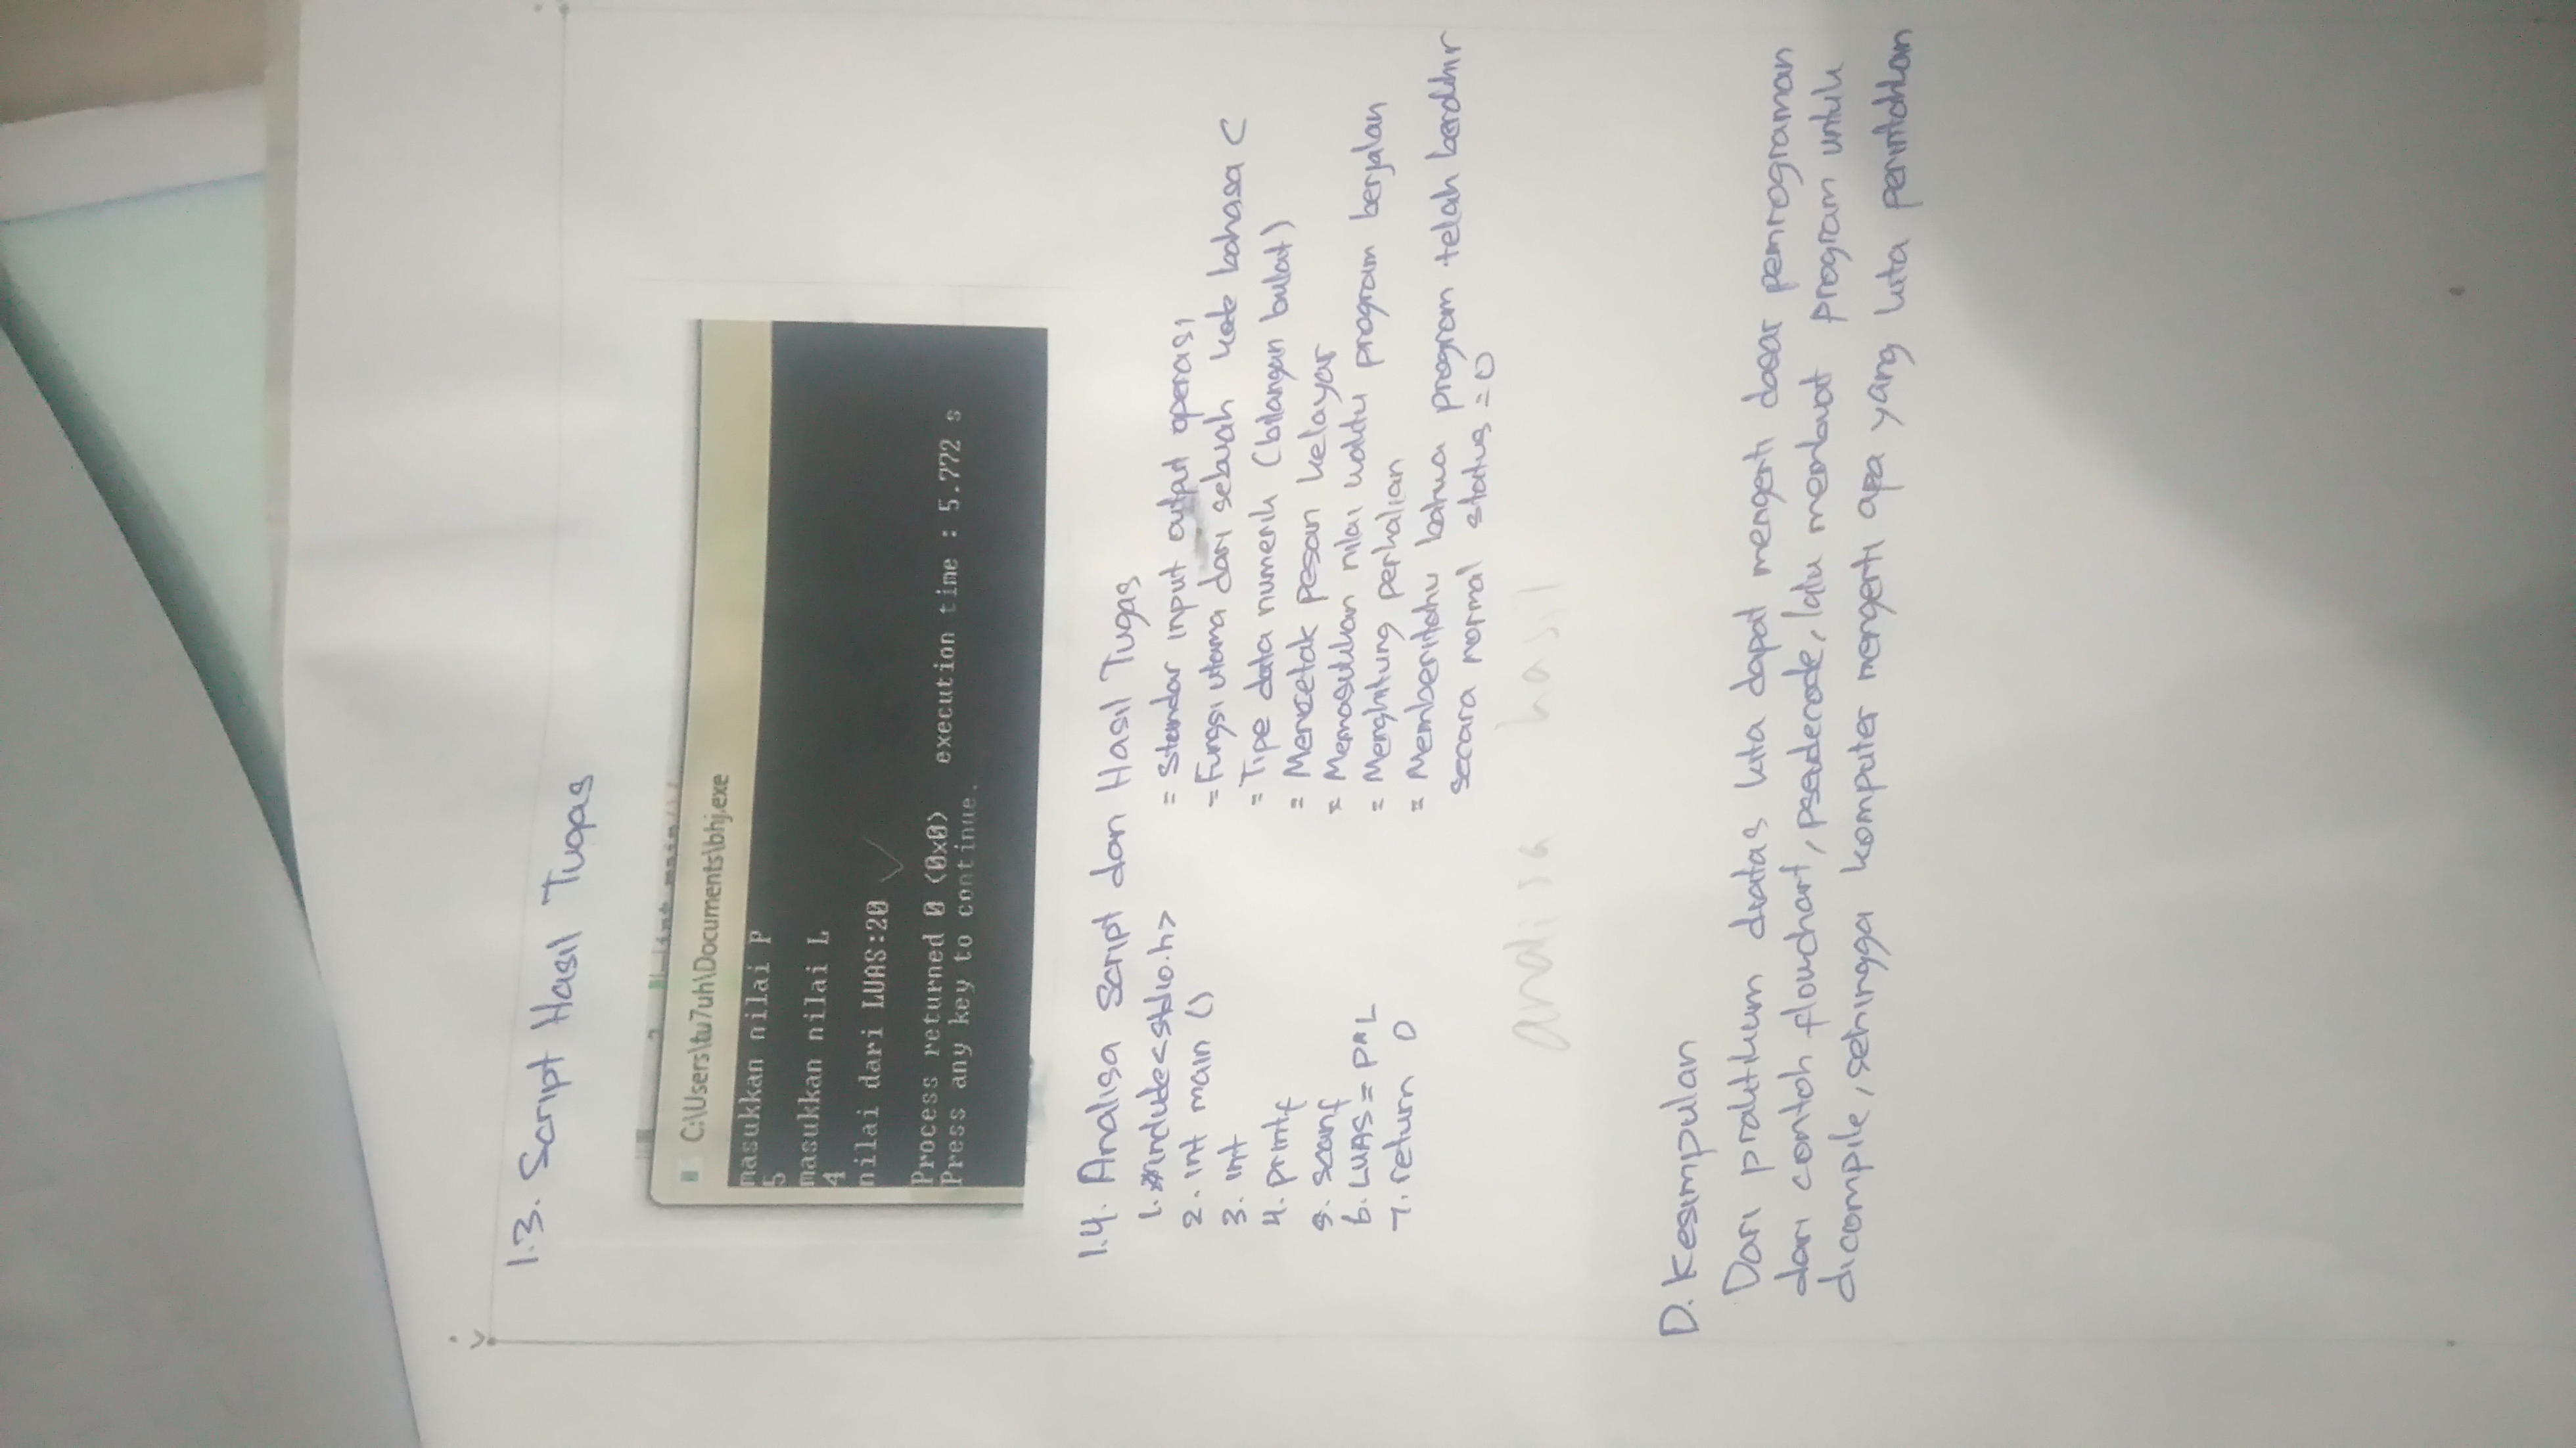 1.3. Script Hasil Tugas
C:\Users\tu7uh\Documents\bhj.exe
masukkan nilai P
5
masukkan nilai L
4
nilai dari LUAS:20
Process returned 0 (0x0) execution time : 5.772 s
Press any key to continue.
1.4. Analisa Script dan Hasil Tugas
1. #include<stdio.h> = Standar input output operasi
2. int main () = Fungsi utama dari sebuah kode bahasa C
3. int = Tipe data numerik (bilangan bulat)
4. printf = Mencetak pesan kelayar
5. scanf = Memasukkan nilai waktu program berjalan
6. LUAS = P*L = Menghitung perkalian
7. return 0 = Memberitahu bahwa program telah berakhir
secara normal status = 0
analisa hasil
D. Kesimpulan
Dari praktikum diatas kita dapat mengerti dasar pemrograman
dari contoh flowchart, pseudecode, lalu membuat program untuk
dicompile, sehingga komputer mengerti apa yang kita perintahkan